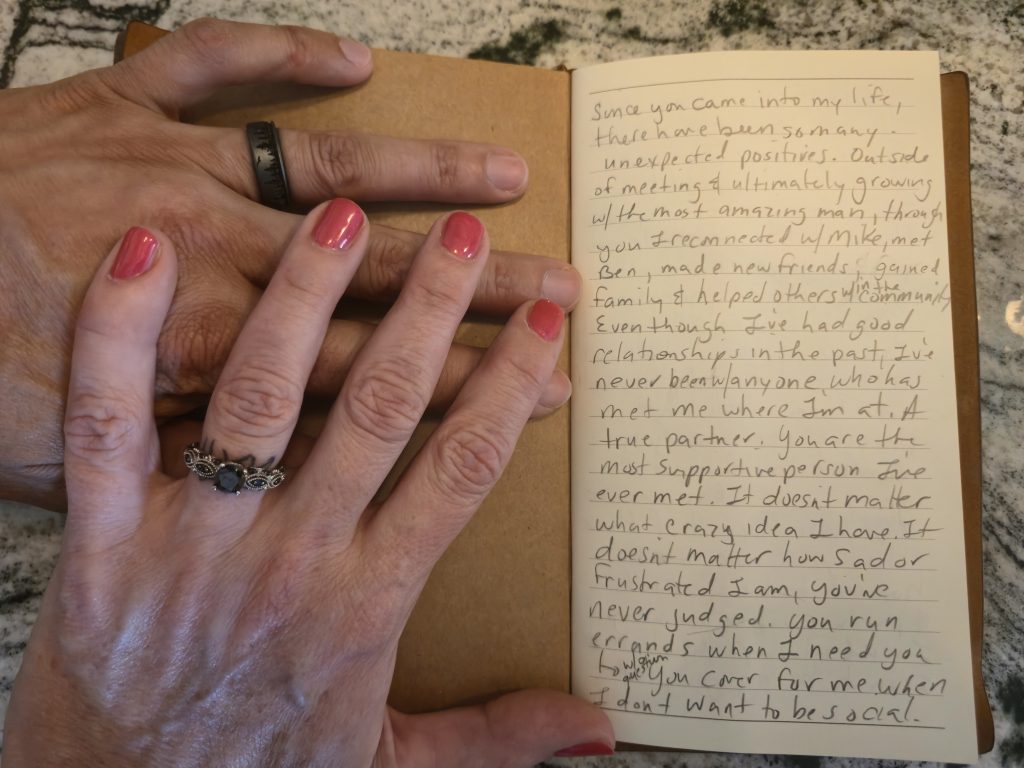 Since you came into my life,
there have been so many
unexpected positives. Outside
of meeting & ultimately growing
w/the most amazing man, through
you I reconnected w/Mike, met
Ben, made new friends, gained
family & helped others within the community
Even though I've had good
relationships in the past, I've
never been w/anyone who has
met me where I'm at. A
true partner. You are the
most supportive person I've
ever met. It doesn't matter
what crazy idea I have. It
doesn't matter how sad or
frustrated I am, you've
never judged. You run
errands when I need you
to w/ questions You cover for me when
I don't want to be social.